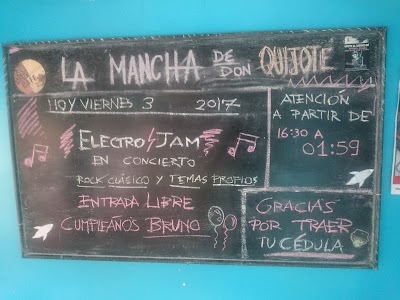 LA MANCHA DE DON QUIJOTE
HOY VIERNES 3 2017
ELECTRO JAM
EN CONCIERTO
ROCK CLÁSICO Y TEMAS PROPIOS
ENTRADA LIBRE
CUMPLEAÑOS BRUNO
ATENCIÓN
A PARTIR DE
16:30 A
01:59
GRACIAS
POR TRAER
TU CÉDULA